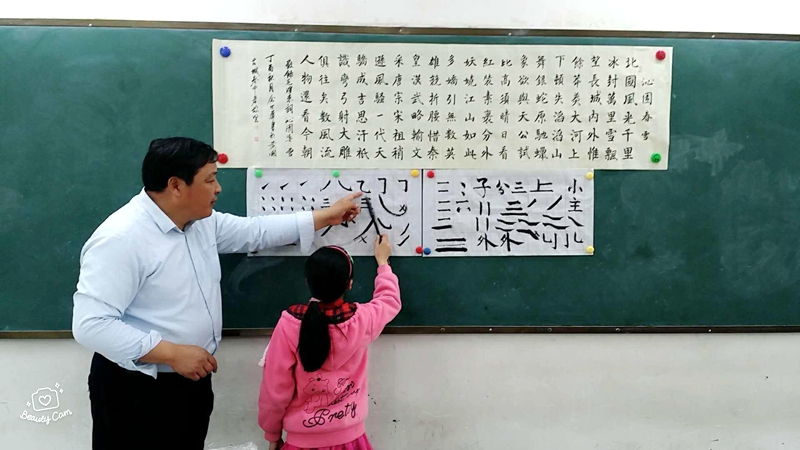 沁園春雪
北國風光千里
冰封萬里雪飄
望長城内外惟
餘莽莽大河上
下頓失滔滔山
舞銀蛇原馳蠟
象欲與天公試
比高須晴日看
紅裝素裹分外
妖嬈江山如此
多嬌引無數英
雄競折腰惜秦
皇漢武略輸文
采唐宗宋祖稍
遜風騷一代天
驕成吉思汗祇
識彎弓射大雕
俱往矣數風流
人物還看今朝
毛澤東詞沁園春雪
丁酉秋月
子公三上小
主
外外
Pretty
Beauty Cam